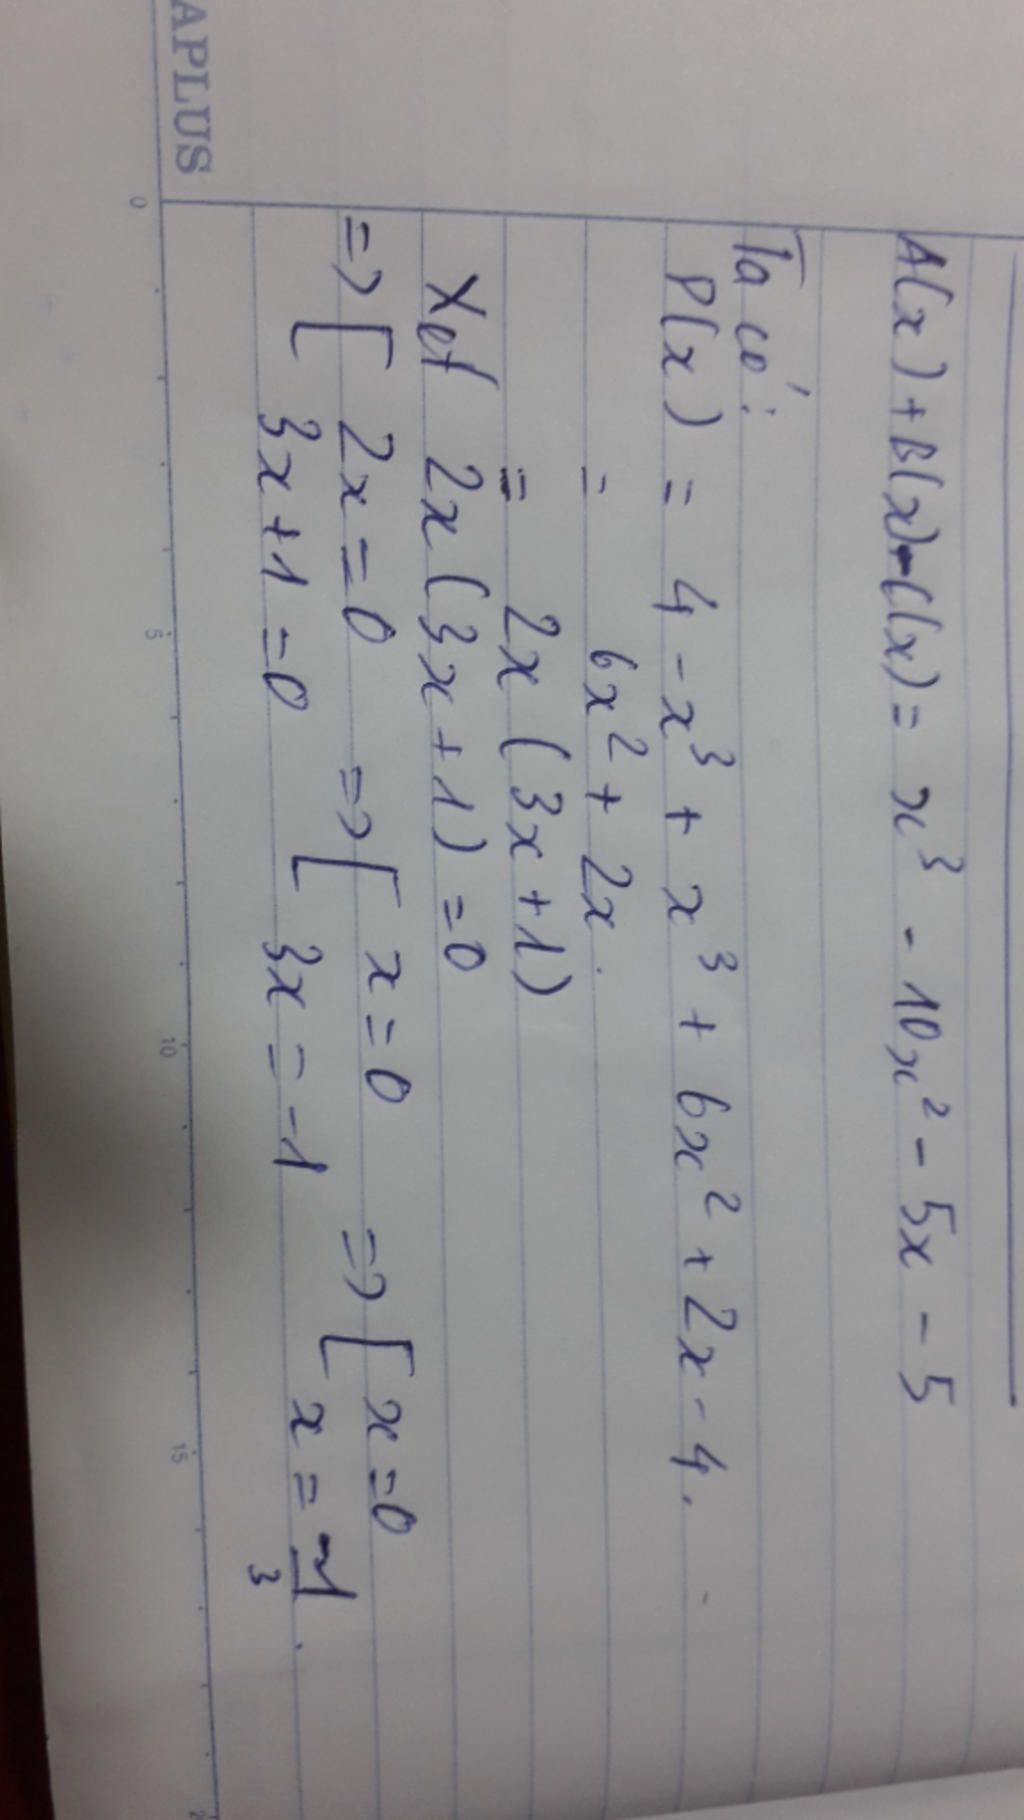 A(x) + B(x) - C(x) = x³ - 10x² - 5x - 5
Ta có:
P(x) = 4 - x³ + x³ + 6x² + 2x - 4.
= 6x² + 2x.
= 2x (3x + 1)
Xét 2x (3x + 1) = 0
=> [ 2x = 0 => [ x = 0 => [ x = 0
3x + 1 = 0 3x = -1 x = -1/3.
APLUS
0 5 10 15 2